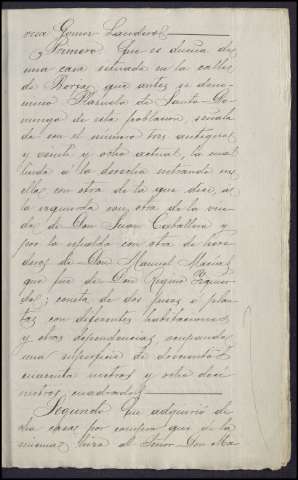 Gomez Landero
Primero. Que es dueña de
una casa situada en la calle
de Borja que antes se deno-
minó Plazuela de Santo Do-
mingo de esta poblacion, señala-
da con el número tres antiguo
y veinte y ocho actual, la cual
linda á la derecha entrando en
ella con otra de la que dice, á
la izquierda con otra de la viu-
da de Don Juan Caballero y
por la espalda con otra de here-
deros de Don Manuel Macias
que fué de Don Regino Izquier-
do; consta de dos pisos ó plan-
tas con diferentes habitaciones
y otras dependencias, ocupando
una superficie de doscientos
cuarenta metros y ocho decí-
metros cuadrados.
Segundo. Que adquirió de-
cha casa por compra que de la
misma hizo al Señor Don Ma-